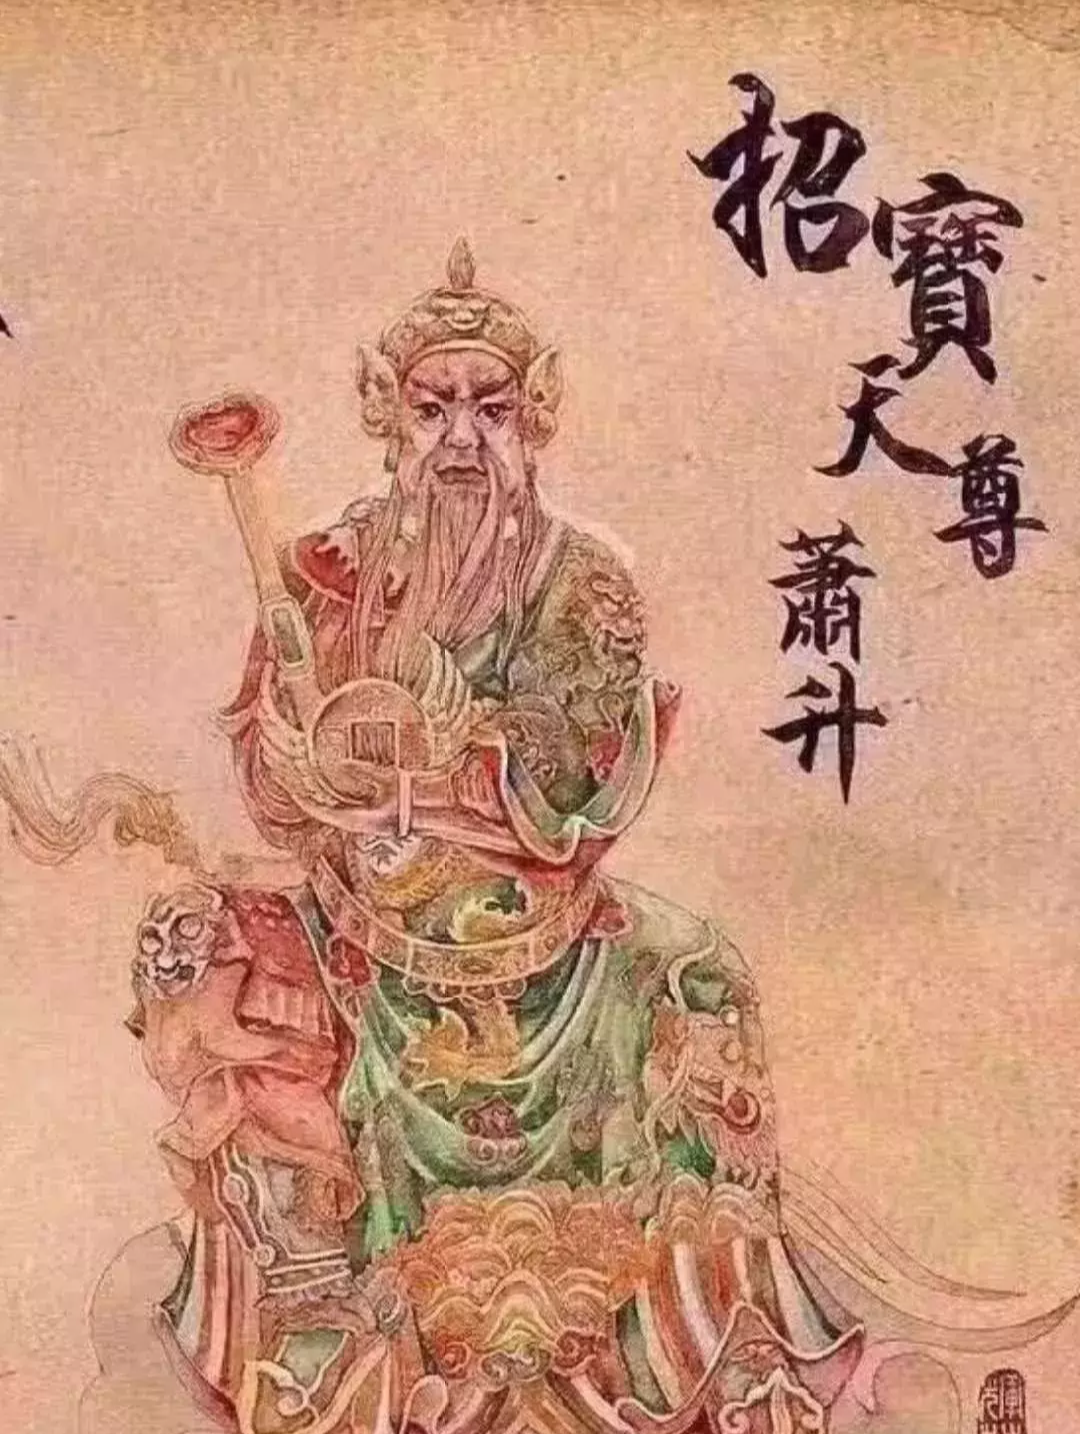 招寶天尊
蕭升